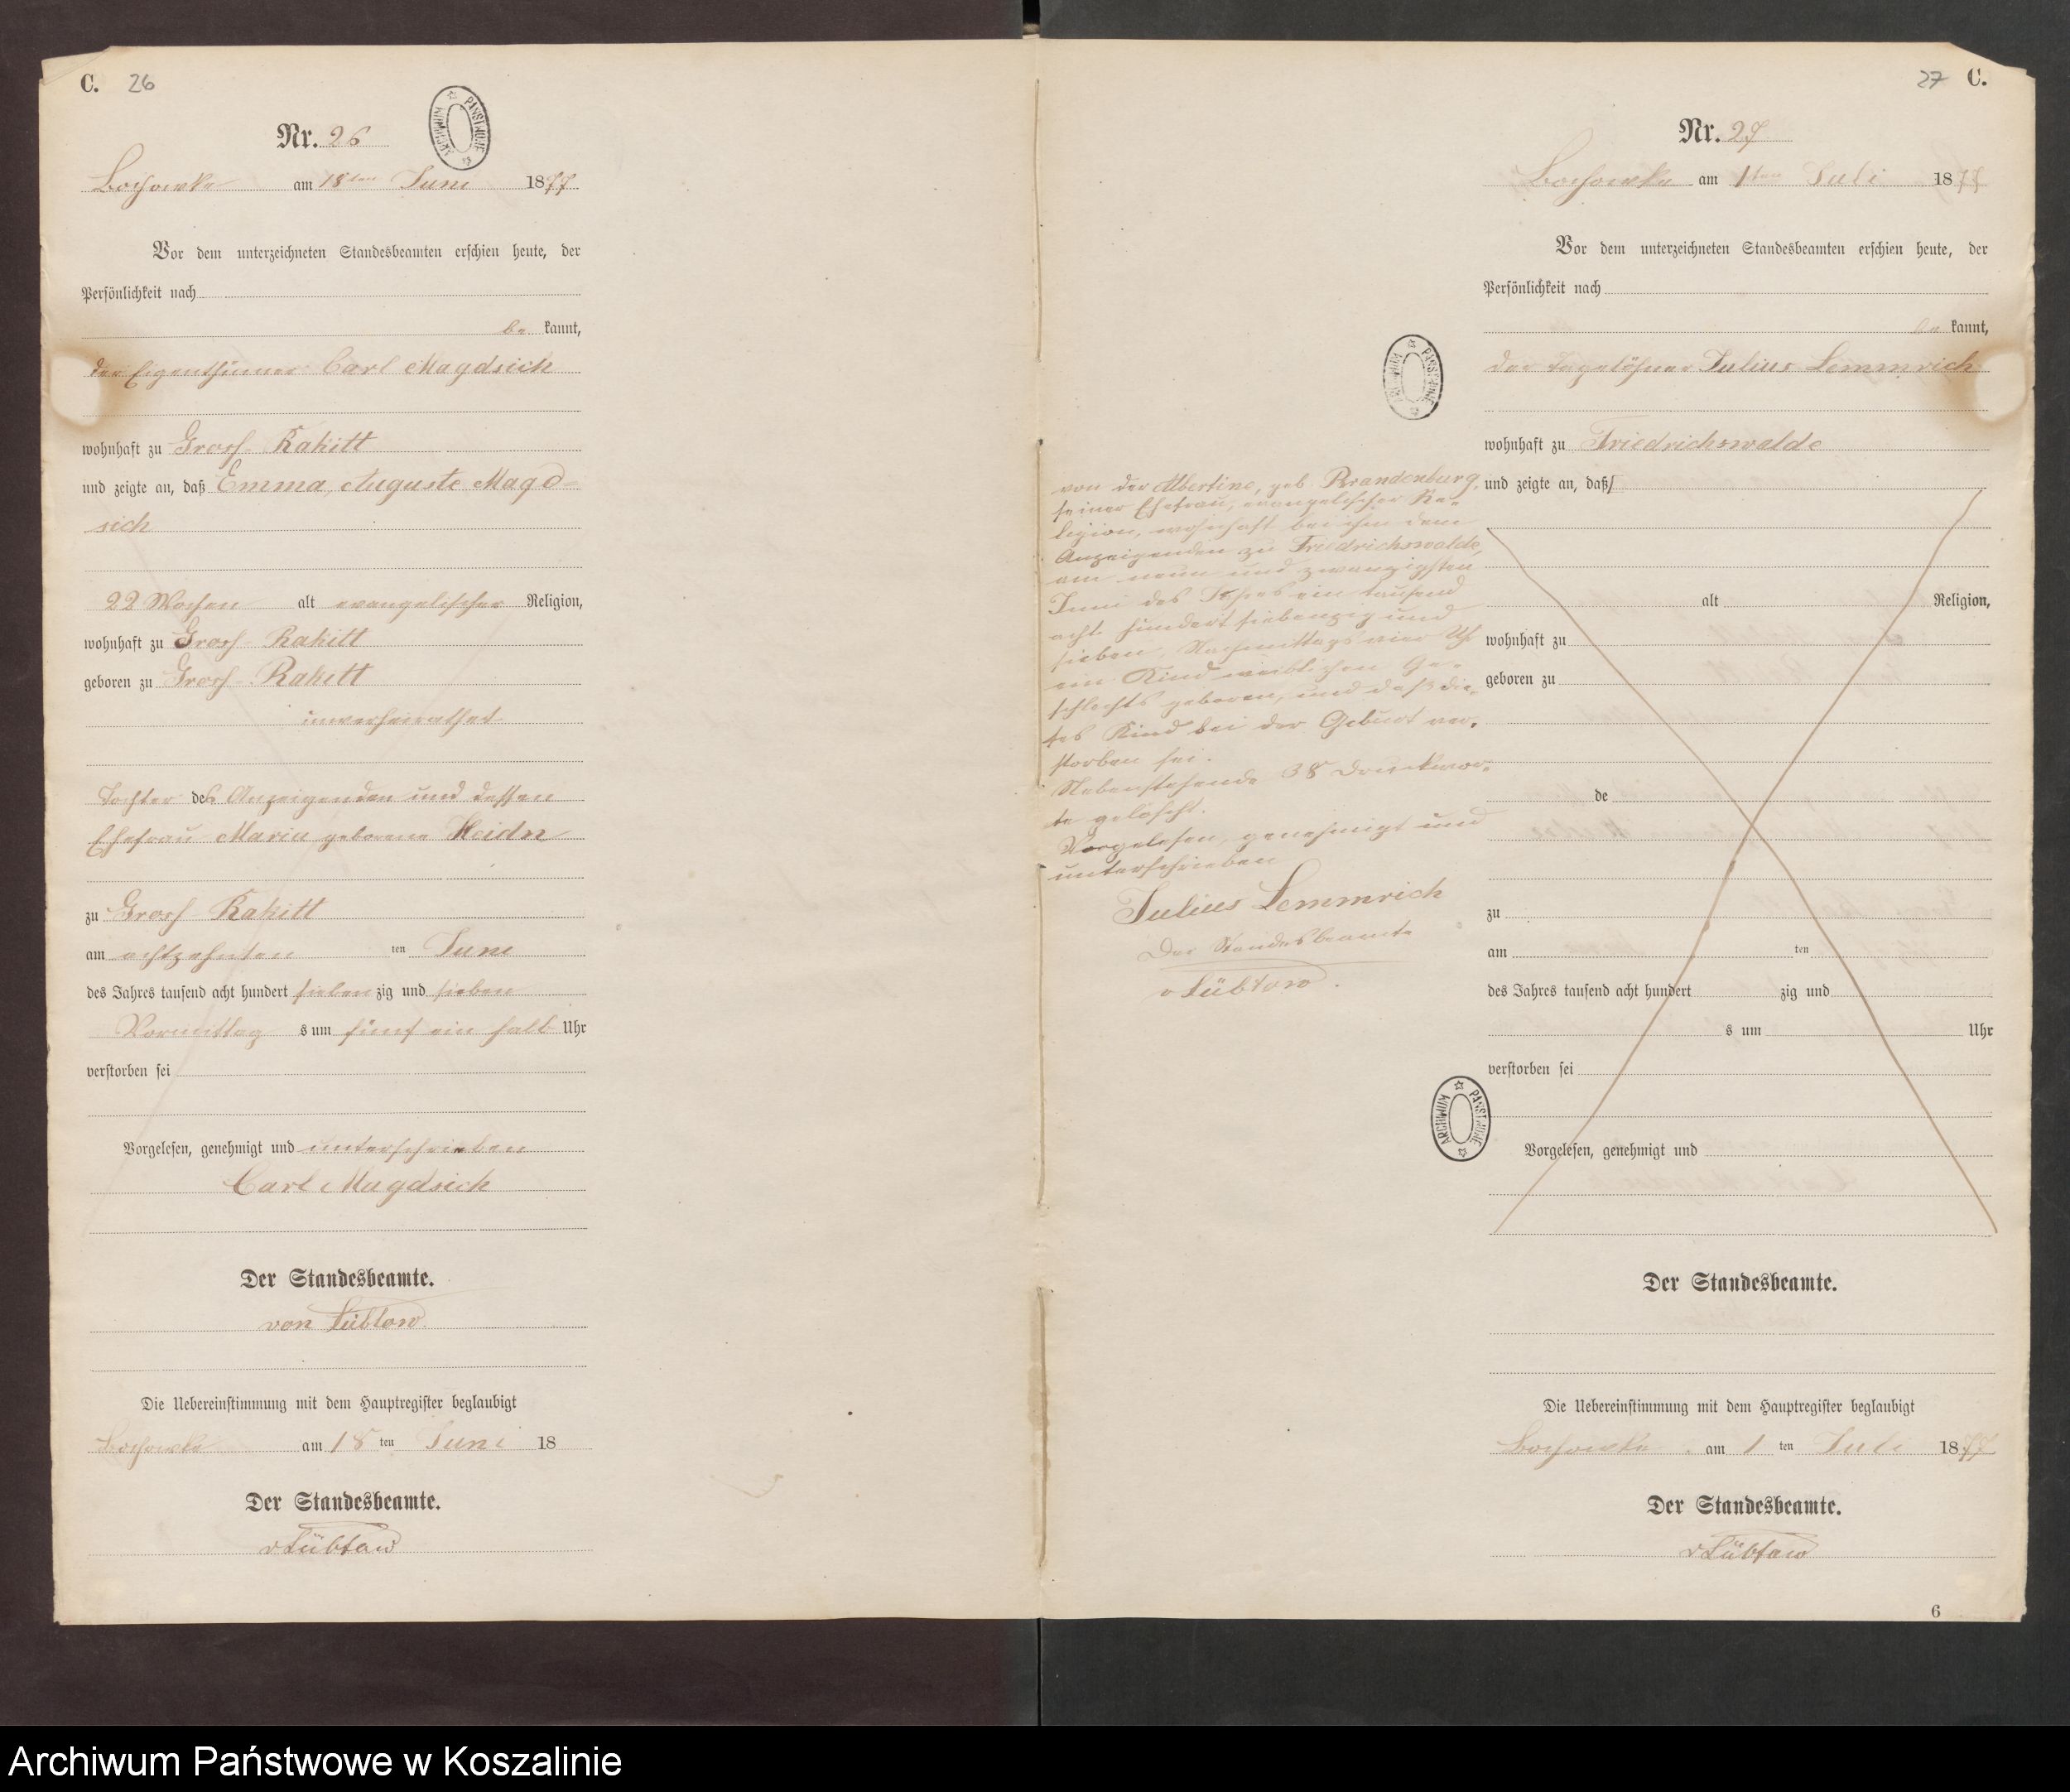 C. 26
ARCHIWUM PAŃSTWOWE
Nr. 26
Bochowke am 18ten Juni 1877
Vor dem unterzeichneten Standesbeamten erschien heute, der
Persönlichkeit nach
be kannt,
der Eigenthümer Carl Magdsich
wohnhaft zu Gross Rakitt
und zeigte an, daß Emma, Auguste Magd-
sich
22 Wochen alt evangelischer Religion,
wohnhaft zu Gross Rakitt
geboren zu Gross Rakitt
unverheirathet
Tochter des Anzeigenden und dessen
Ehefrau Maria geborene Heidn
zu Gross Rakitt
am achtzehnten ten Juni
des Jahres tausend acht hundert sieben zig und sieben
Vormittag s um fünf ein halb Uhr
verstorben sei
Vorgelesen, genehmigt und unterschrieben
Carl Magdsich
Der Standesbeamte.
von Lübtow
Die Uebereinstimmung mit dem Hauptregister beglaubigt
Bochowke am 18 ten Juni 18
Der Standesbeamte.
v Lübtow
27 C.
Nr. 27
Bochowke am 1ten Juli 1877
Vor dem unterzeichneten Standesbeamten erschien heute, der
Persönlichkeit nach
be kannt,
der Tagelöhner Julius Lemmrich
ARCHIWUM PAŃSTWOWE
wohnhaft zu Friedrichswalde
und zeigte an, daß
von der Albertine, geb. Brandenburg,
seiner Ehefrau, evangelischer Re-
ligion, wohnhaft bei ihm dem
Anzeigenden zu Friedrichswalde,
am neun und zwanzigsten
Juni des Jahres ein tausend
acht hundert siebenzig und
sieben, Nachmittags vier Uhr
ein Kind weiblichen Ge-
schlechts geboren, und daß die-
ses Kind bei der Geburt ver-
storben sei.
Nebenstehende 38 Druckwor-
te gelöscht.
Vorgelesen, genehmigt und
unterschrieben
Julius Lemmrich
Der Standesbeamte
v Lübtow.
alt Religion,
wohnhaft zu
geboren zu
de
zu
am ten
des Jahres tausend acht hundert zig und
s um Uhr
verstorben sei
ARCHIWUM PAŃSTWOWE
Vorgelesen, genehmigt und
Der Standesbeamte.
Die Uebereinstimmung mit dem Hauptregister beglaubigt
Bochowke am 1 ten Juli 1877
Der Standesbeamte.
v Lübtow
6
Archiwum Państwowe w Koszalinie